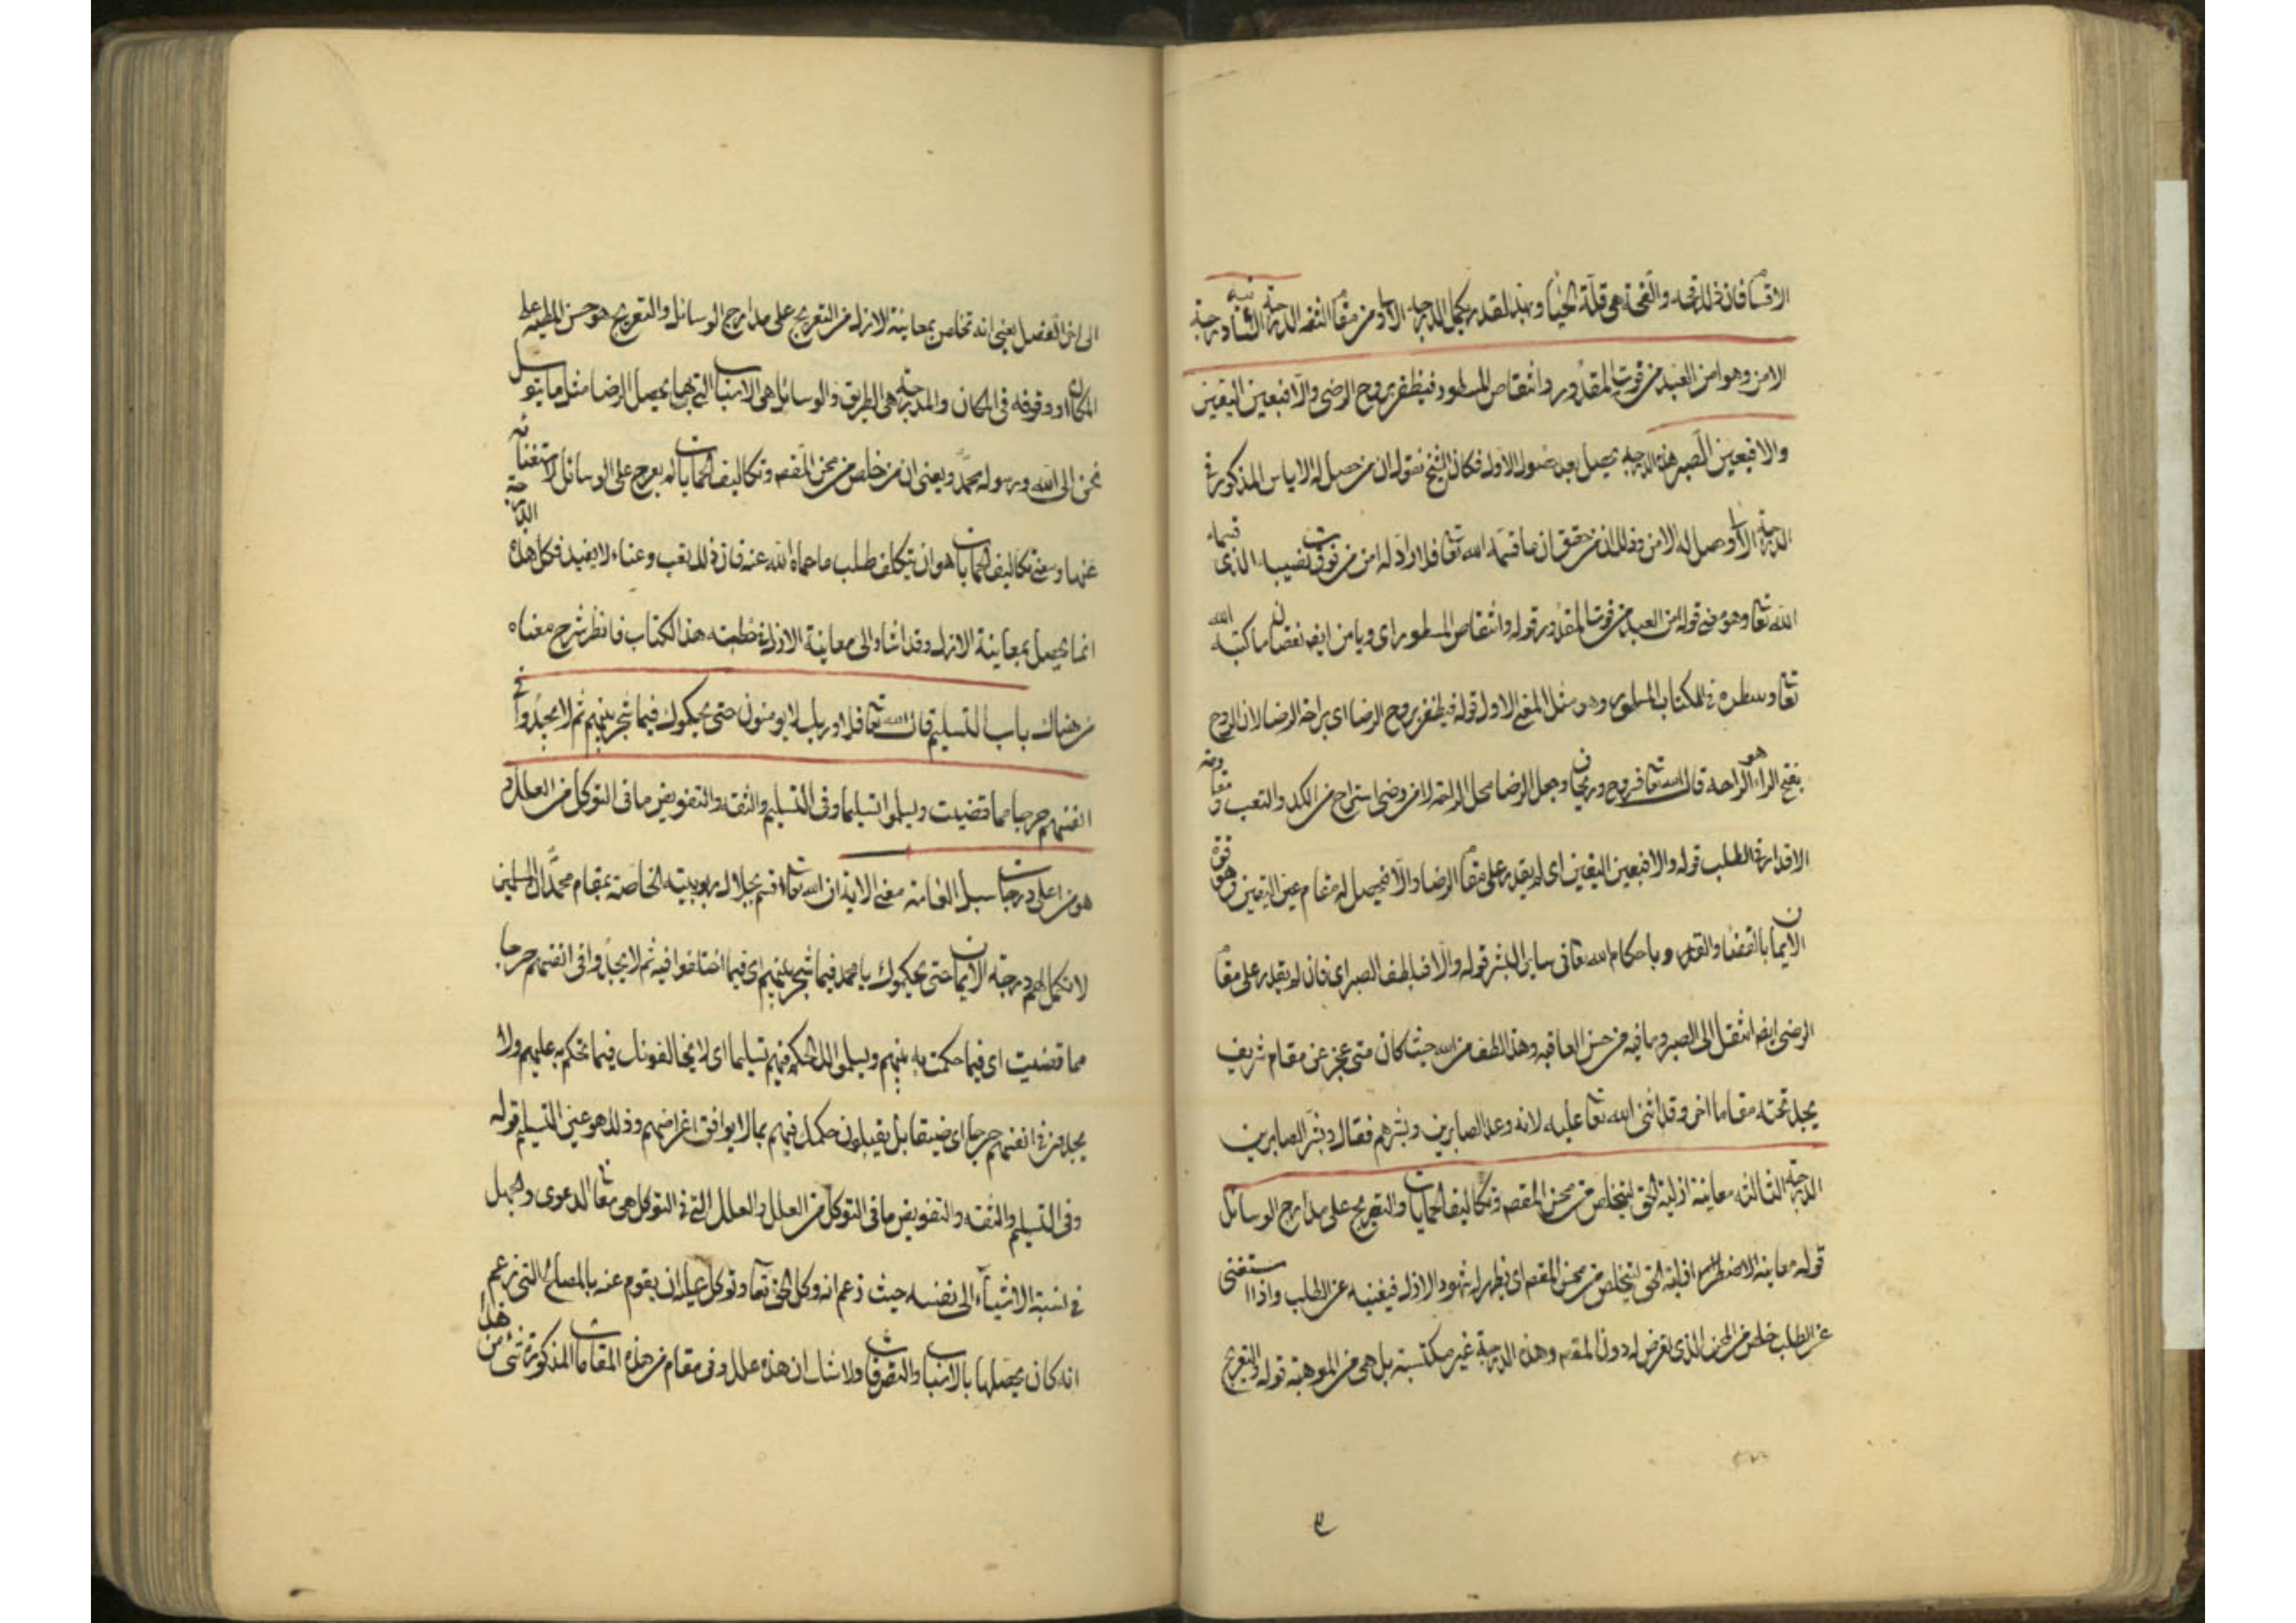 الاقسام فان ذلك قحه والقحة هي قلة الحيا وبهذا القدر يكمل الدرجة الاولى من مقام الثقه الدرجة الثانية درجة
الامن وهو امن العبد من فوت المقدور وانتقاص المسطور فيظفر بروح الرضى والا فبعين اليقين
والا فبعين الصبر هذه الدرجة تحصل بعد حصول الاولى فكان الشيخ يقول ان من حصل له الاياس المذكور في
الدرجة الاولى حصل له الامن وذلك ان من تحقق ان ما قسمه الله تعا فلا راد له امن من فوت نصيبه الذي قسمه
الله تعا وهو معنى قوله امن العبد من فوت المقدور قوله وانتقاص المسطور اى ويامن ايضا نقصان ما كتبه الله
تعا وسطره في الكتاب المسطور وهو مثل المعنى الاول قوله فيظفر بروح الرضا اى براحة الرضا لان الروح
بفتح الراء هو الراحة قال الله تعا فروح وريحان وجعل الرضا محل الراحة لان من رضى استراح من الكد والتعب ومقاومة
الاقدار في الطلب قوله والا فبعين اليقين اى لم يقدر على مقام الرضا والا فيحصل له مقام عين اليقين وهو قوة
الايمان بالقضا والقدر وباحكام الله تعا في ساير البشر قوله والا فبلطف الصبر اى فان لم يقدر على مقام
الرضى ايضا انتقل الى الصبر وما فيه من حسن العاقبه وهذا لطف من الله حيث كان متى عجز عن مقام شريف
يجد تحته مقاما اخر وقد اثنى الله تعا عليه لانه وعد الصابرين وبشرهم فقال وبشر الصابرين
الدرجة الثالثه معاينة ازلية الحق ليتخلص من محن المقصم وتكاليف الحمايات والتعريج على مدارج الوسائل
قوله معاينة ازلية الحق ليتخلص من محن المقصم اى يظهر له شهود الازل فيغنيه عن الطلب واذا استغنى
عن الطلب خلص من المحن الذى تعرض له دون المقصم وهذه الدرجة غير مكتسبة بل هي من الموهبة قوله والتعريج
الى اخر الفصل يعنى انه تخلص بمعاينة الازل من التعريج على مدارج الوسائل والتعريج هو حبس المطية على
المكان او وقوفه في المكان والمدرجة هي الطريق والوسائل هي الاسباب التي بها يحصل الرضا مثل ما يتوسل
نحن الى الله ورسوله محمد ويعنى ان من خلص من محن المقصم وتكاليف الحمايات لم يعرج على الوسائل لاستغنائه
عنها ومعنى تكاليف الحمايات هو ان يتكلف طلب ما حماه الله عنه فان ذلك تعب وعناء لا يفيد فكل هذه الدرجة
انما يحصل بمعاينة الازل وقد اشار الى معاينة الازل في خطبته هذا الكتاب فانظر شرح معناه
من هناك باب التسليم قال الله تعا فلا وربك لا يومنون حتى يحكموك فيما شجر بينهم ثم لا يجدوا في
انفسهم حرجا مما قضيت ويسلموا تسليما وفى التسليم والثقه والتفويض ما فى التوكل من العلل و
هو من اعلى درجات سبل العامة معنى الاية ان الله تعا اقسم بجلال ربوبيته الخاصة بمقام محمد ان المسلمين
لا تكمل لهم درجة الايمان حتى يحكموك يا محمد فيما شجر بينهم اى فيما اختلفوا فيه ثم لا يجدوا في انفسهم حرجا
مما قضيت اى فيما حكمت به بينهم ويسلموا لك الحكم فيهم تسليما اى لا يخالفونك فيما تحكم به عليهم ولا
يجدون في انفسهم حرجا اى ضيقا بل يقبلون حكمك فيهم بما لا يوافق اغراضهم وذلك هو عين التسليم قوله
وفى التسليم والثقه والتفويض ما فى التوكل من العلل والعلل التي في التوكل هي مقام الدعوى والجهل
في نسبة الاشياء الى نفسه حيث زعم انه وكل الحق تعا وتوكل عليه ان يقوم عنه بالمصالح التي زعم
انه كان يحصلها بالاسباب والتصرفات ولا شك ان هذه علل وفى مقام من هذه المقامات المذكورة شئ من هذا